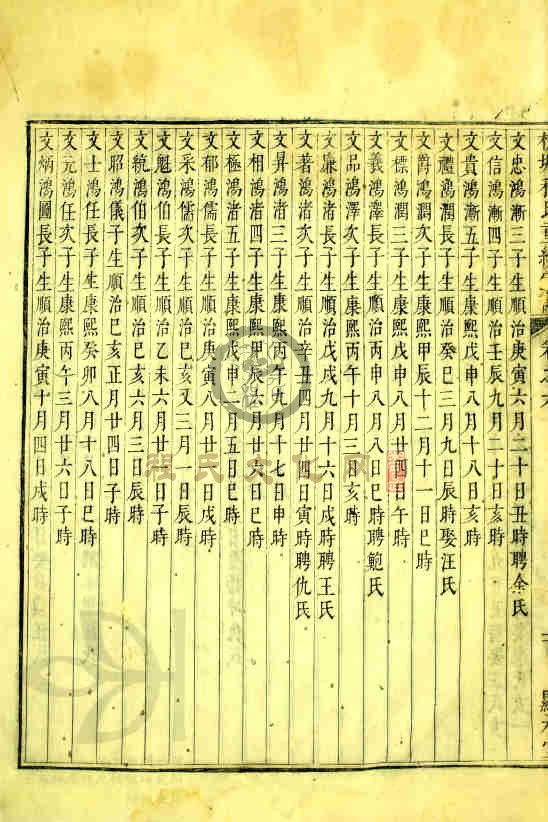 文忠鴻漸三子生順治庚寅六月二十日丑時聘余氏
文信鴻漸四子生順治壬辰九月二十日亥時
文貴鴻漸五子生康熙戊申八月十八日亥時
文禮鴻潤長子生順治癸巳三月九日辰時娶汪氏
文爵鴻潤次子生康熙甲辰十二月十一日巳時
文標鴻潤三子生康熙戊申八月廿四日午時
文義鴻澤長子生順治丙申八月八日巳時聘鮑氏
文品鴻澤次子生康熙丙午十月三日亥時
文廉鴻渚長子生順治戊戌九月十六日戌時聘王氏
文著鴻渚次子生順治辛丑四月廿四日寅時聘仇氏
文昇鴻渚三子生康熙丙午九月十七日申時
文相鴻渚四子生康熙甲辰六月廿六日巳時
文極鴻渚五子生康熙戊申二月五日巳時
文郁鴻儒長子生順治庚寅八月廿七日戌時
文采鴻儒次子生順治己亥又三月一日辰時
文魁鴻伯長子生順治乙未六月廿七日子時
文統鴻伯次子生順治己亥六月三日辰時
文昭鴻儀子生順治己亥正月廿四日子時
文士鴻任長子生康熙癸卯八月十八日巳時
文元鴻任次子生康熙丙午三月廿六日子時
文炳鴻圖長子生順治庚寅十月四日戌時
程氏文化网